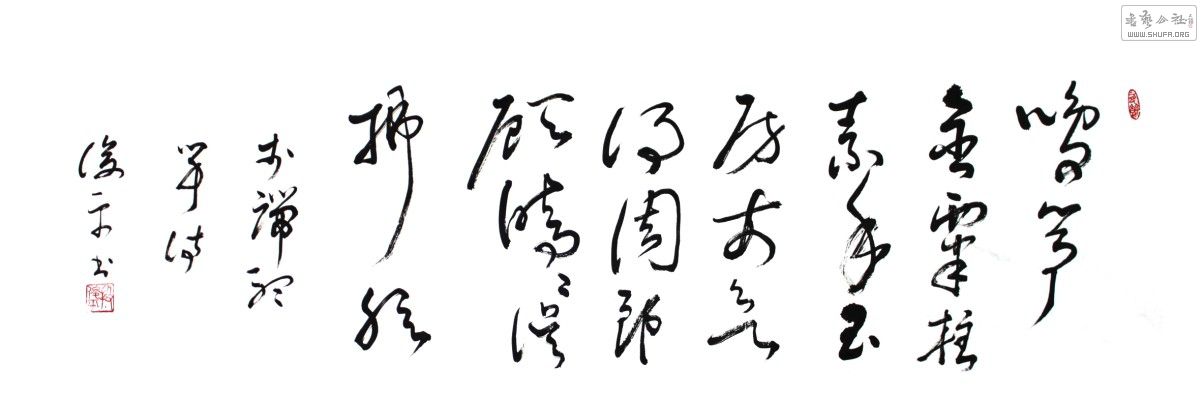 書藝公社
WWW.SHUFA.ORG
鳴箏
金粟柱
素手玉
房前欲
得周郎
顧時〻誤
拂絃
李端聽
箏詩
俊平書